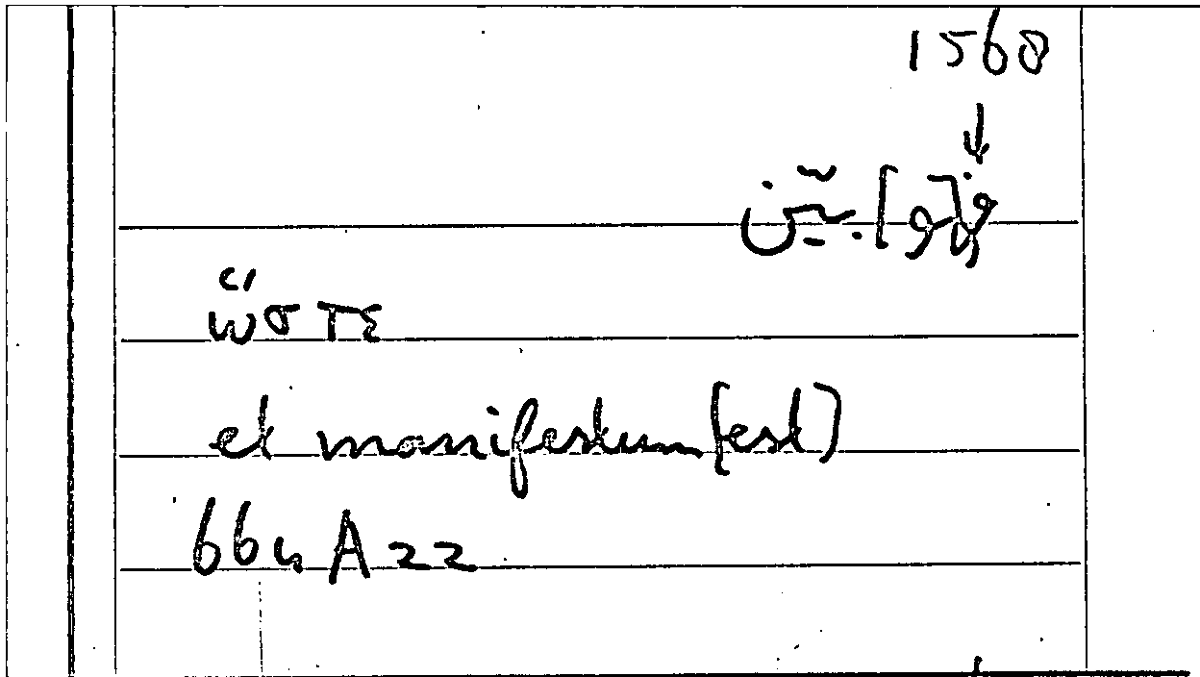 1568
بيّن
ὥστε
et manifestum [est]
664 A 22